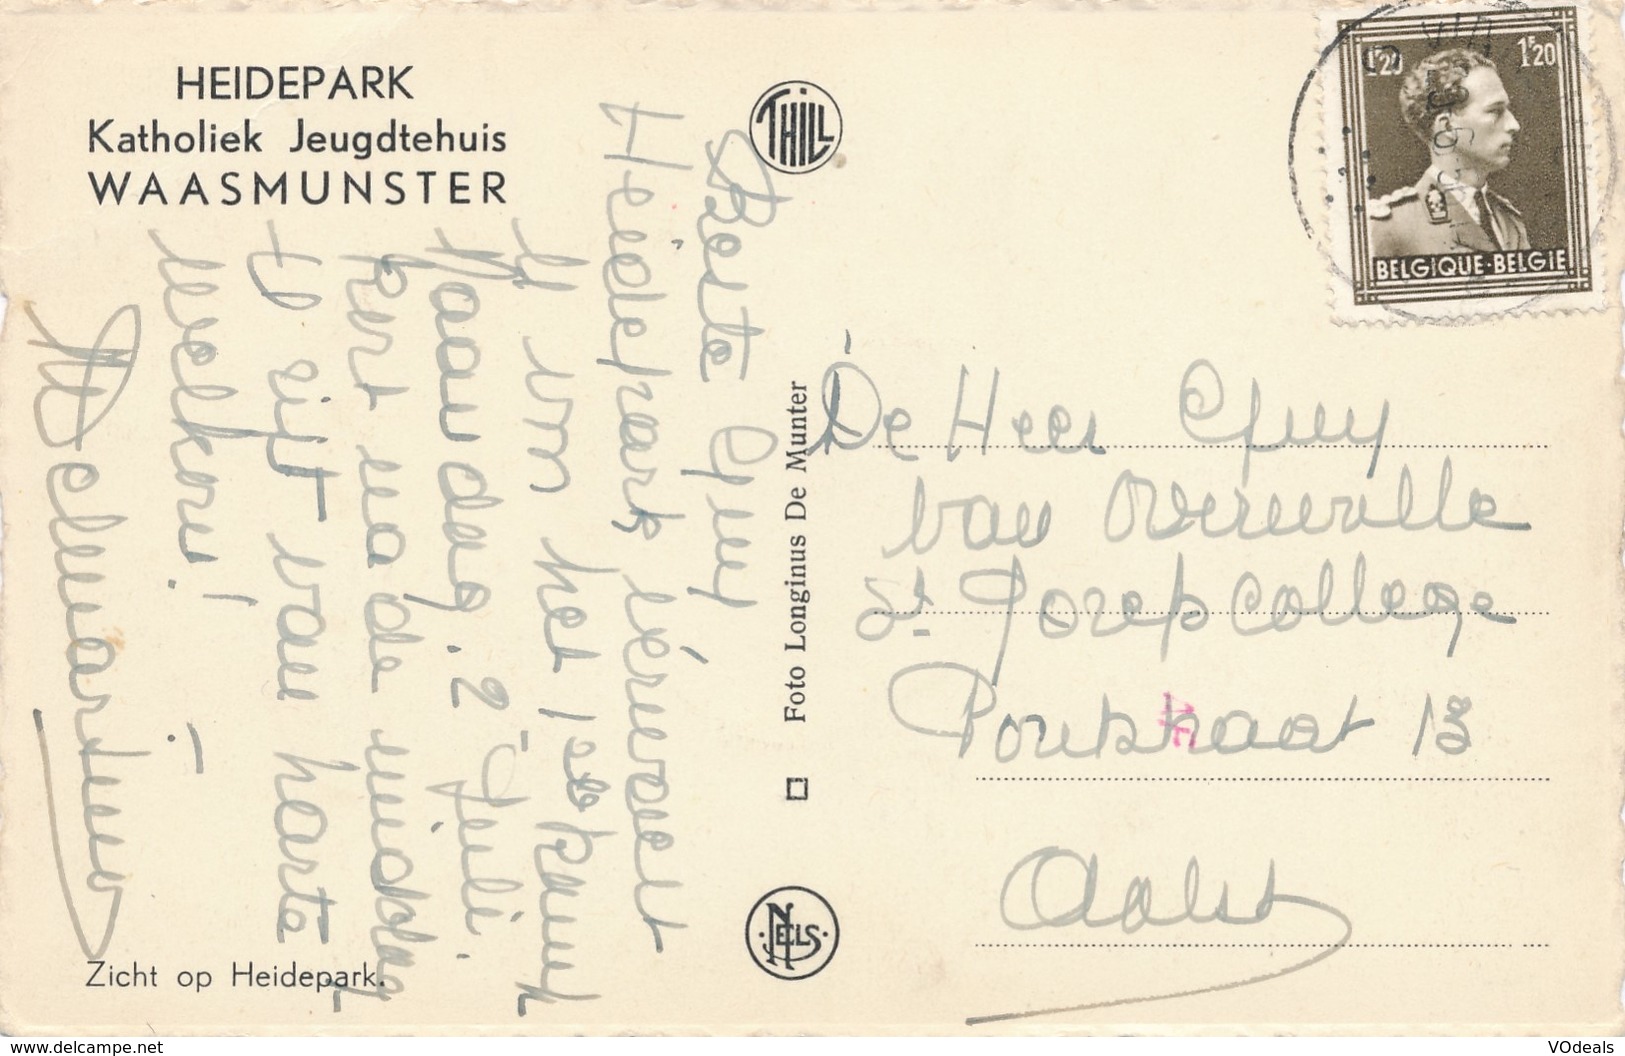 HEIDEPARK
Katholiek Jeugdtehuis
WAASMUNSTER
THILL
1F20 1F20
BELGIQUE·BELGIE
Beste Guy
Heidepark verwacht
U voor het 1ste kamp
Maandag. 2 Juli.
in de middag
U zijt van harte
welkom!
Foto Longinus De Munter
De Heer Guy
van Overwelle
St Jozefscollege
13
Aalst
NELS
Zicht op Heidepark.
www.delcampe.net
VOdeals